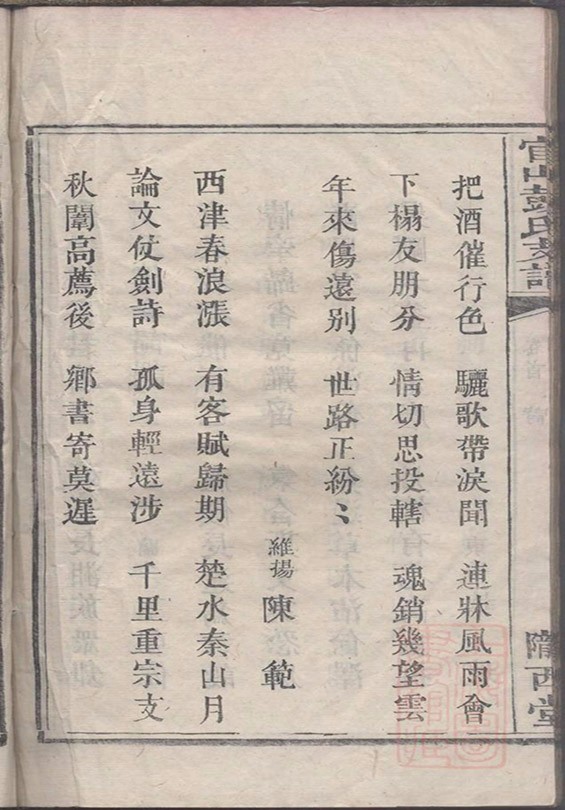 官山彭氏支譜
隴西堂
把酒催行色　驪歌帶淚聞　連牀風雨會
下榻友朋分　情切思投轄　魂銷幾望雲
年來傷遠別　世路正紛〻
維揚　陳範
西津春浪漲　有客賦歸期　楚水秦山月
論文仗劍詩　孤身輕遠涉　千里重宗支
秋闈高薦後　鄉書寄莫遲